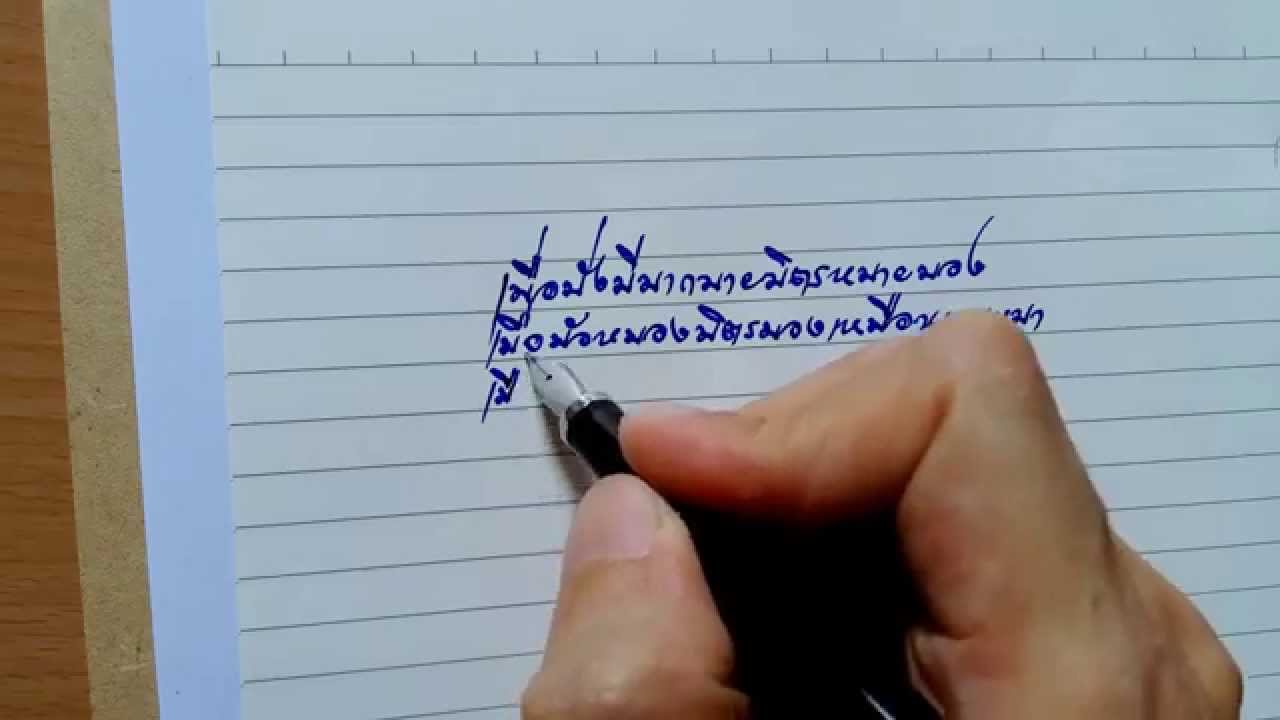 เมื่อมั่งมีมากมายมิตรหมายมอง
เมื่อมัวหมองมิตรมองเหมือนหมูหมา
เมื